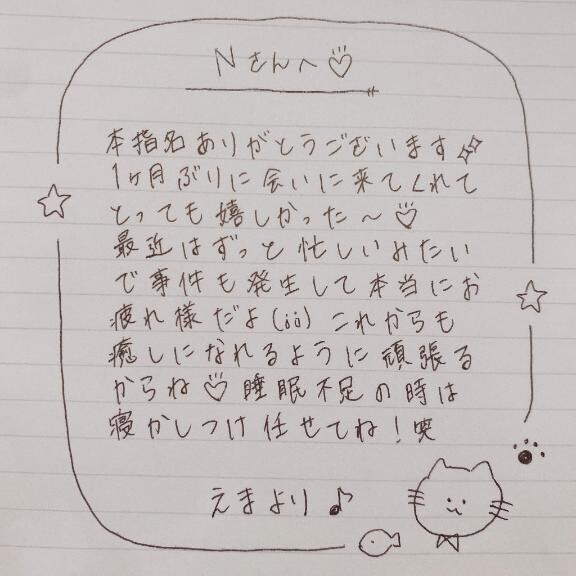 Nさんへ♡
本指名ありがとうございます✨
1ヶ月ぶりに会いに来てくれて
とっても嬉しかった〜♡
最近はずっと忙しいみたい
で事件も発生して本当にお
疲れ様だよ(;;)これからも
癒しになれるように頑張る
からね♡睡眠不足の時は
寝かしつけ任せてね!笑
えまより♪